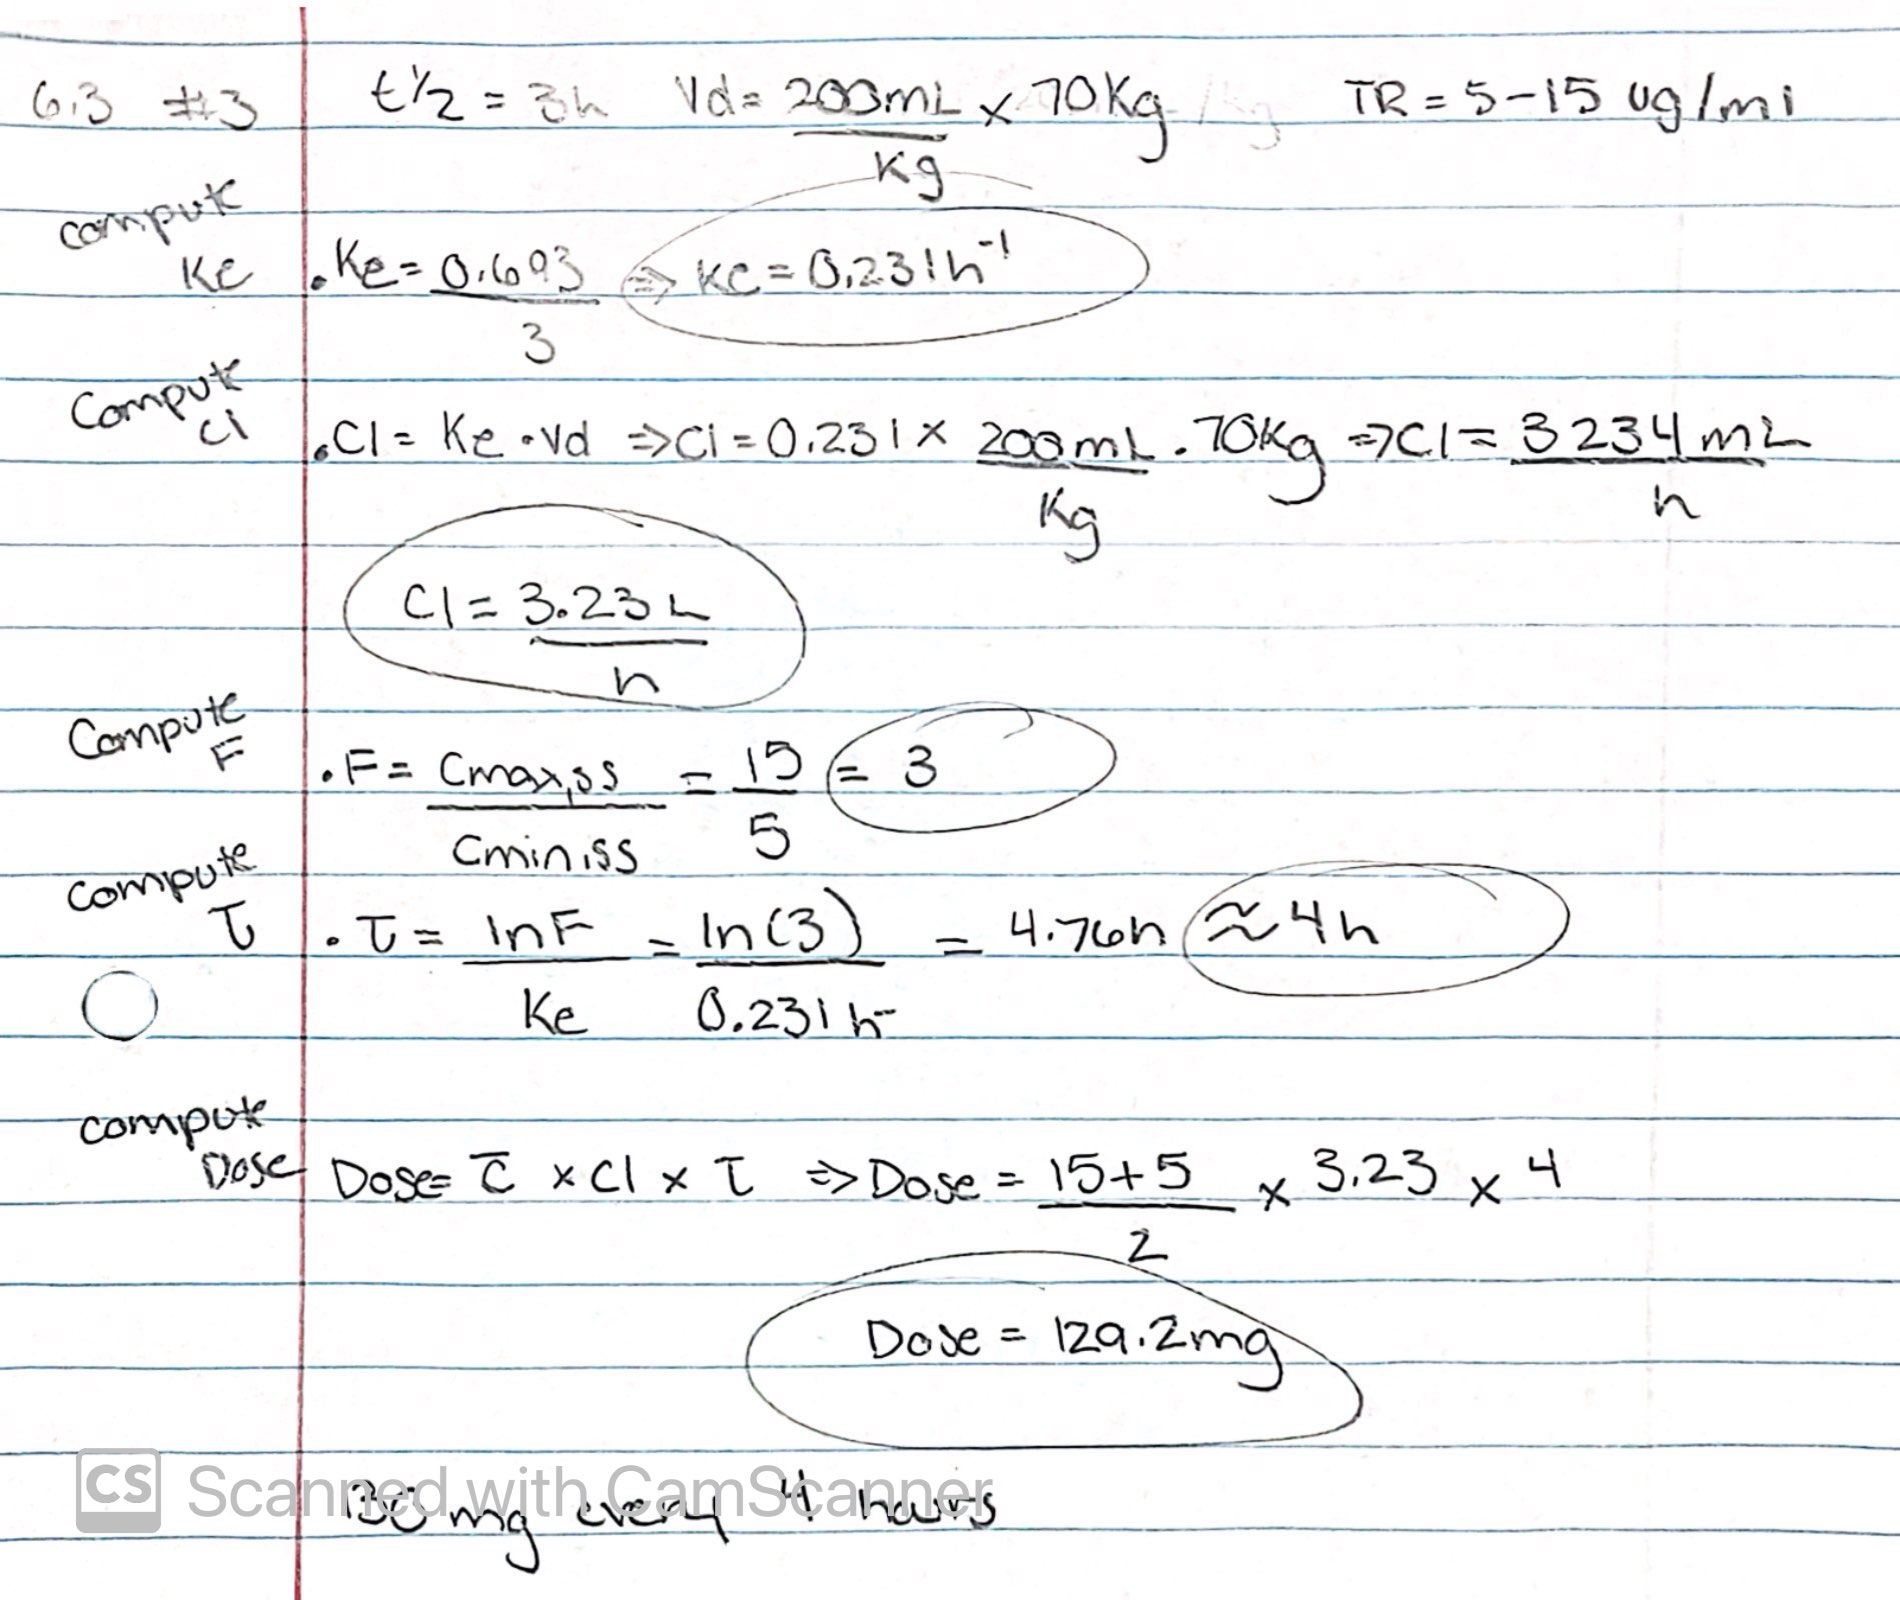 6.3 #3 t½ = 3h Vd = 200mL/Kg x 70Kg TR = 5-15 ug/ml
compute Ke . Ke = 0.693/3 ⇒ Ke = 0.231h⁻¹
Compute Cl . Cl = Ke · Vd ⇒ Cl = 0.231 x 200mL/Kg . 70Kg ⇒ Cl = 3234 mL/h
Cl = 3.23 L/h
Compute F . F = Cmax,ss/Cmin,ss = 15/5 = 3
compute τ . τ = lnF/Ke = ln(3)/0.231h⁻ = 4.76h ≈ 4h
compute Dose Dose = C̄ x Cl x τ ⇒ Dose = 15+5/2 x 3.23 x 4
Dose = 129.2mg
CS Scanned with CamScanner
130 mg every 4 hours